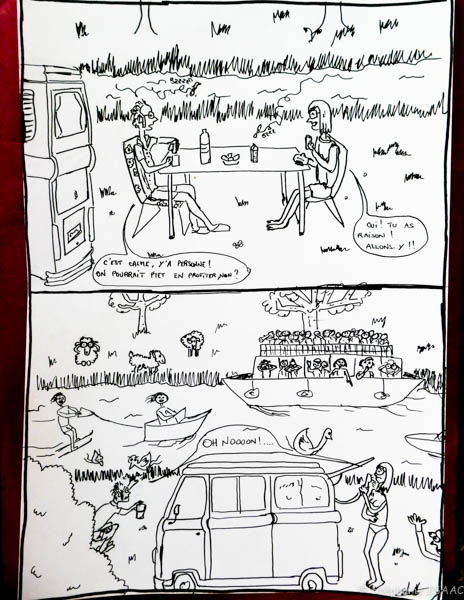 BZZZZT
BZZ
C'EST CALME, Y'A PERSONNE!
ON POURRAIT PET EN PROFITER, NON?
OUI! TU AS
RAISON!
ALLONS-Y!!
OH NOOOON!....